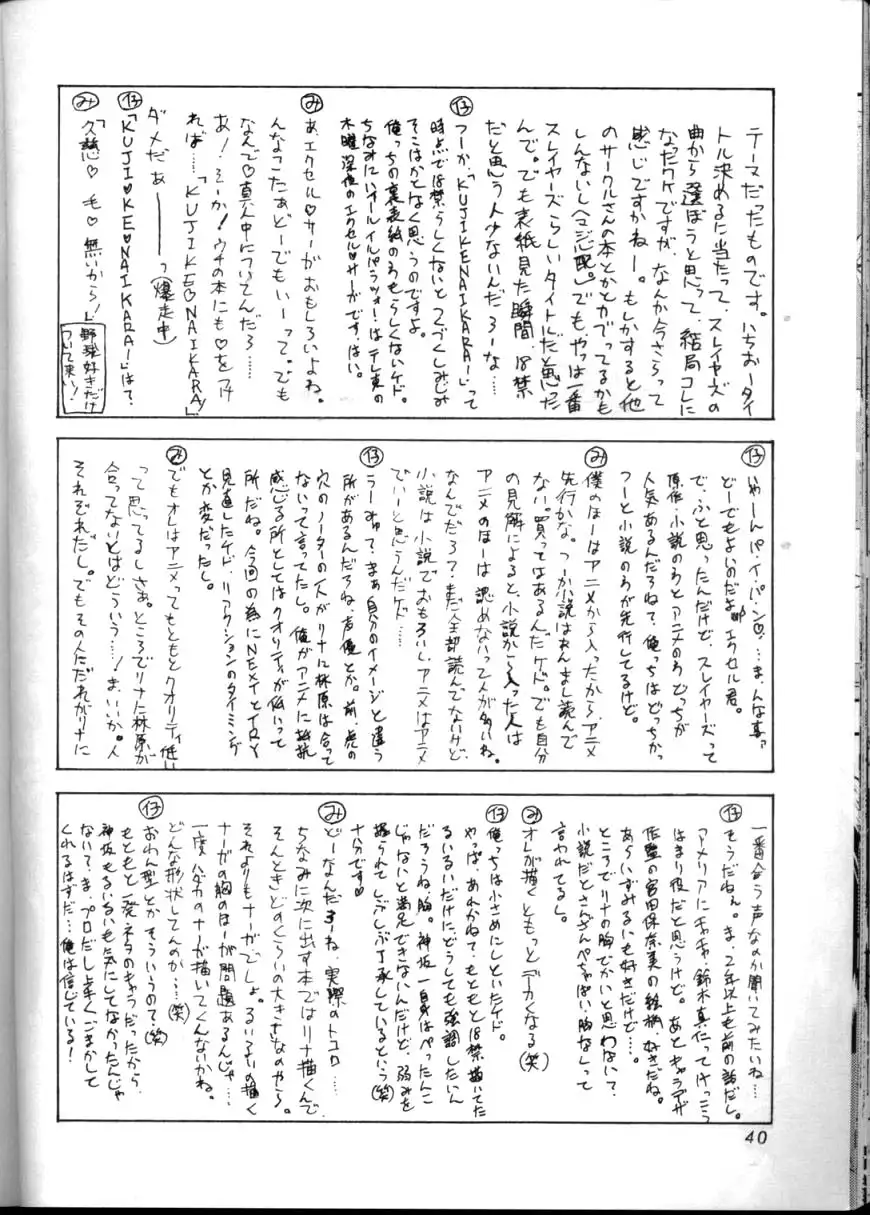 テーマだったものです。いちおータイ
トル決めるに当たって、スレイヤーズの
曲から選ぼうと思って、結局コレに
なったワケですが、なんか今さらって
感じですかねー。もしかすると他
のサークルさんの本とかとカブってるかも
しんないし(マジ心配)。でも、やっぱ一番
スレイヤーズらしいタイトルだと思った
んで。でも表紙見た瞬間、18禁
だと思う人少ないんだろーな……
㋑つーか、「KUJIKENAIKARA!」って
時点で18禁らしくないとつくづくしみじみ
そこはかとなく思うのですよ。
俺っちの裏表紙のわもらしくないケド。
ちなみに、オールイルパラッツォ!はテレ東の
木曜深夜のエクセル♡サーガです、はい。
み あ、エクセル♡サーガおもしろいよね。
んなこたぁどーでもいーって。でも
なんで♡真ん中についてんだろ……
あ!そーか!ウチの本にも♡をつけ
れば……「KUJIKE♡NAIKARA!」
ダメだぁ────っ(爆走中)
仔「KUJI♡KE♡NAIKARA!」は?
み「久慈♡毛♡無いから!」
野球好きだけ
ついて来い!
仔 いやーんパ・イ・パーン♡?……ま、んな事っ
どーでもよいのだよ エクセル君。
で、ふと思ったんだけど、スレイヤーズって
原作・小説のわとアニメのわどっちが
人気あるんだろね?俺っちはどっちかっ
つーと小説のわが先行してるけど。
み 僕のほーはアニメから入ったから、アニメ
先行かな。つーか小説はあんまし読んで
ない。買ってはあるんだケド。でも自分
の見解によると、小説から入った人は
アニメのほーは認めないって人が多いね。
なんでだろ?まだ全部読んでないけど、
小説は小説でおもろいし、アニメはアニメ
でいーと思うんだケド……
仔 うーみゅ?まぁ自分のイメージと違う
所があるんだろね、声優とか。前、虎の
穴のノーターの人がリナに林原は合って
ないって言ってたし。俺がアニメに抵抗
感じる所としてはクオリティが低いって
所だね。今回の為にNEXTとTRY
見直したケド、リアクションのタイミング
とか変だったし。
み でもオレはアニメってもともとクオリティ低い
って思ってるしさぁ。ところでリナに林原が
合ってないとはどういう…!ま、いいか。人
それぞれだし。でもその人ただれがリナに
一番合う声なのか聞いてみたいね…
仔 そうだねぇ。ま、2年以上も前の話だし。
アメリアにチャチャ、鈴木真仁ってけっこう
はまり役だと思うけど。あとキャラデザ
佐盤の宮田保奈美の絵柄、好きだね。
あらいずみるいも好きだけど…。
ところでリナの胸でかいと思わない?
小説だとさんざんぺちゃぱい胸なしって
言われてるし。
み オレが描くともっとデカくなる(笑)
仔 俺っちは小さめにしといたケド。
やっぱ、あれかね?もともと18禁描いてた
るいるいだけに、どうしても強調したいん
だろうね、胸。神坂一自身はぺったんこ
じゃないと満足できないんだけど、弱みを
握られてしぶしぶ了承しているという(笑)
十分です♡
み どーなんだろーね、実際のトコロ……
ちなみに次に出す本ではリナ描くんで、
そんときどのくらいの大きさなのやら。
それよりもナーガでしょ。るいるいの描く
ナーガの胸のほーが問題あるんじゃ…
一度ハダカのナーガ描いてくんないかね。
どんな形状してんのか…(笑)
仔 おわん型とかそういうので(笑)
もともと一発ネタのキャラだったから、
神坂もるいるいも気にしてなかったんじゃ
ない?ま、プロだし上手くごまかして
くれるはずだ…俺は信じている!
40